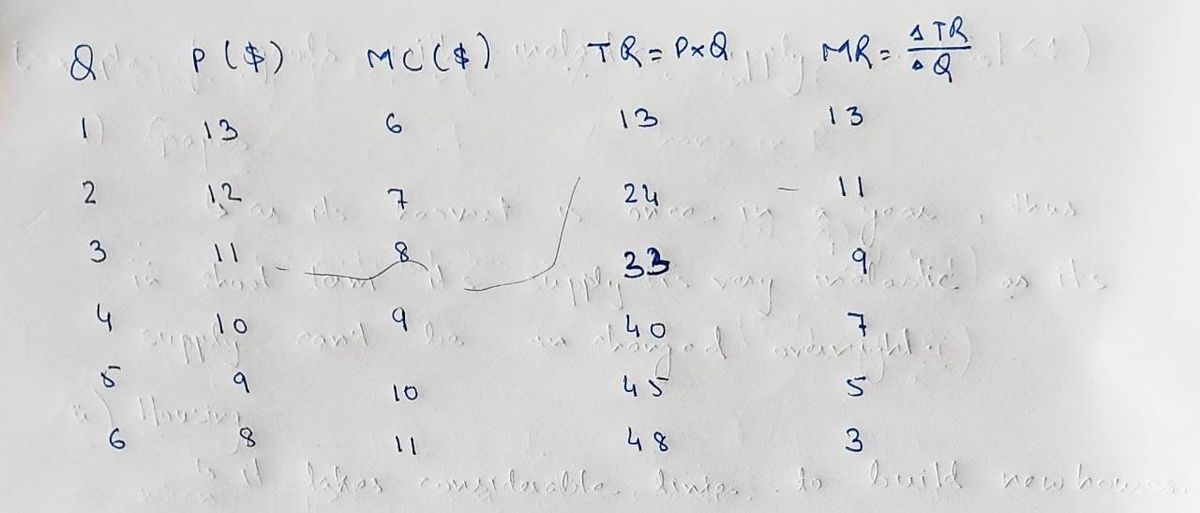 Q P ($) MC ($) TR = P×Q MR = ΔTR/ΔQ
1 13 6 13 13
2 12 7 24 11
3 11 8 33 9
4 10 9 40 7
5 9 10 45 5
6 8 11 48 3